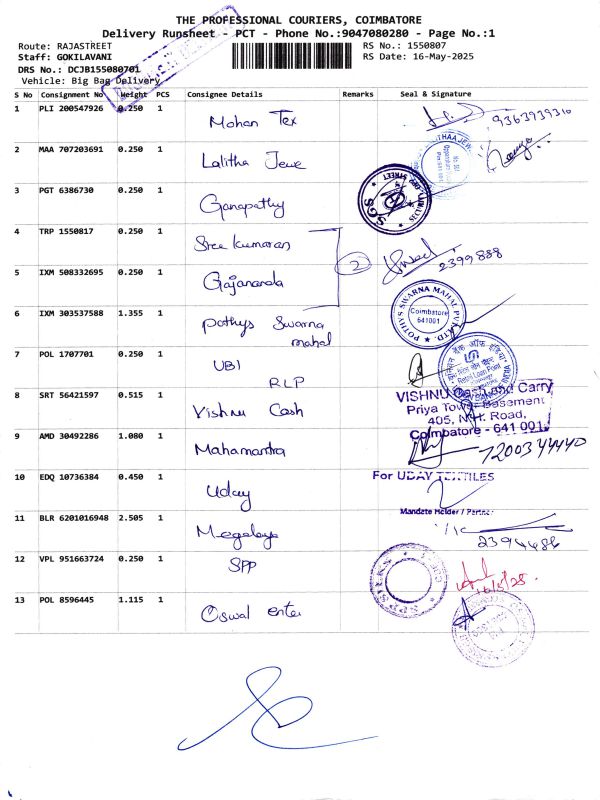 THE PROFESSIONAL COURIERS, COIMBATORE
Delivery Runsheet - PCT - Phone No.:9047080280 - Page No.:1
Route: RAJASTREET
RS No.: 1550807
Staff: GOKILAVANI
RS Date: 16-May-2025
DRS No.: DCJB155080701
Vehicle: Big Bag Delivery
S No Consignment No Weight PCS Consignee Details Remarks Seal & Signature
1 PLI 200547926 0.250 1 Mohan Tex 9363939310
2 MAA 707203691 0.250 1 Lalitha Jewe
3 PGT 6386730 0.250 1 Ganapathy
SGS
4 TRP 1550817 0.250 1 Sree Kumaran
2
2399888
5 IXM 508332695 0.250 1 Gajananda
6 IXM 303537588 1.355 1 Pothys Swarna
mahal
POTHYS SWARNA MAHAL PVT. LTD.
Coimbatore
641001
7 POL 1707701 0.250 1 UBI
RLP
Retail Loan Point
8 SRT 56421597 0.515 1 Vishnu Cash
VISHNU Cash and Carry
Priya Tower Basement
405, N.H. Road,
Coimbatore - 641 001
9 AMD 30492286 1.080 1 Mahamantra
7200344440
10 EDQ 10736384 0.450 1 Uday
For UDAY TEXTILES
Mandate Holder / Partner
11 BLR 6201016948 2.505 1 Megalaya
2394486
12 VPL 951663724 0.250 1 SPP
SPP SILKS
16/5/25.
13 POL 8596445 1.115 1 Oswal enter